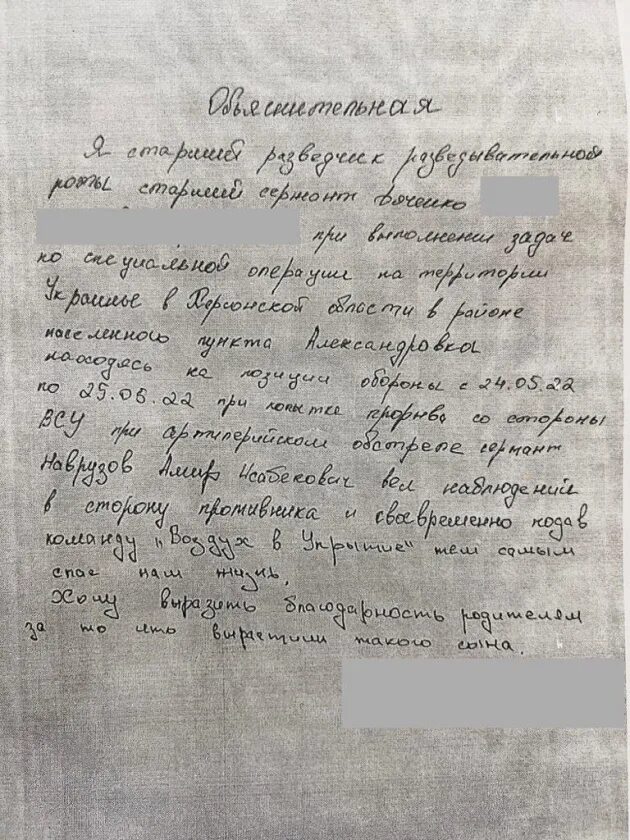 Объяснительная
Я старший разведчик разведывательной
роты старший сержант Дяченко
при выполнении задач
по специальной операции на территории
Украиные в Херсонской области в районе
населенного пункта Александровка
находясь на позиции обороны с 24.05.22
по 25.05.22 при попытке прорыва со стороны
ВСУ при артилерийском обстреле сержант
Наврузов Амир Исабекович вел наблюдений
в сторону противника и своевременно подав
команду "Воздух в Укрытие" тем самым
спас нам жизнь.
Хочу выразить благодарность родителем
за то што вырастили такого сына.